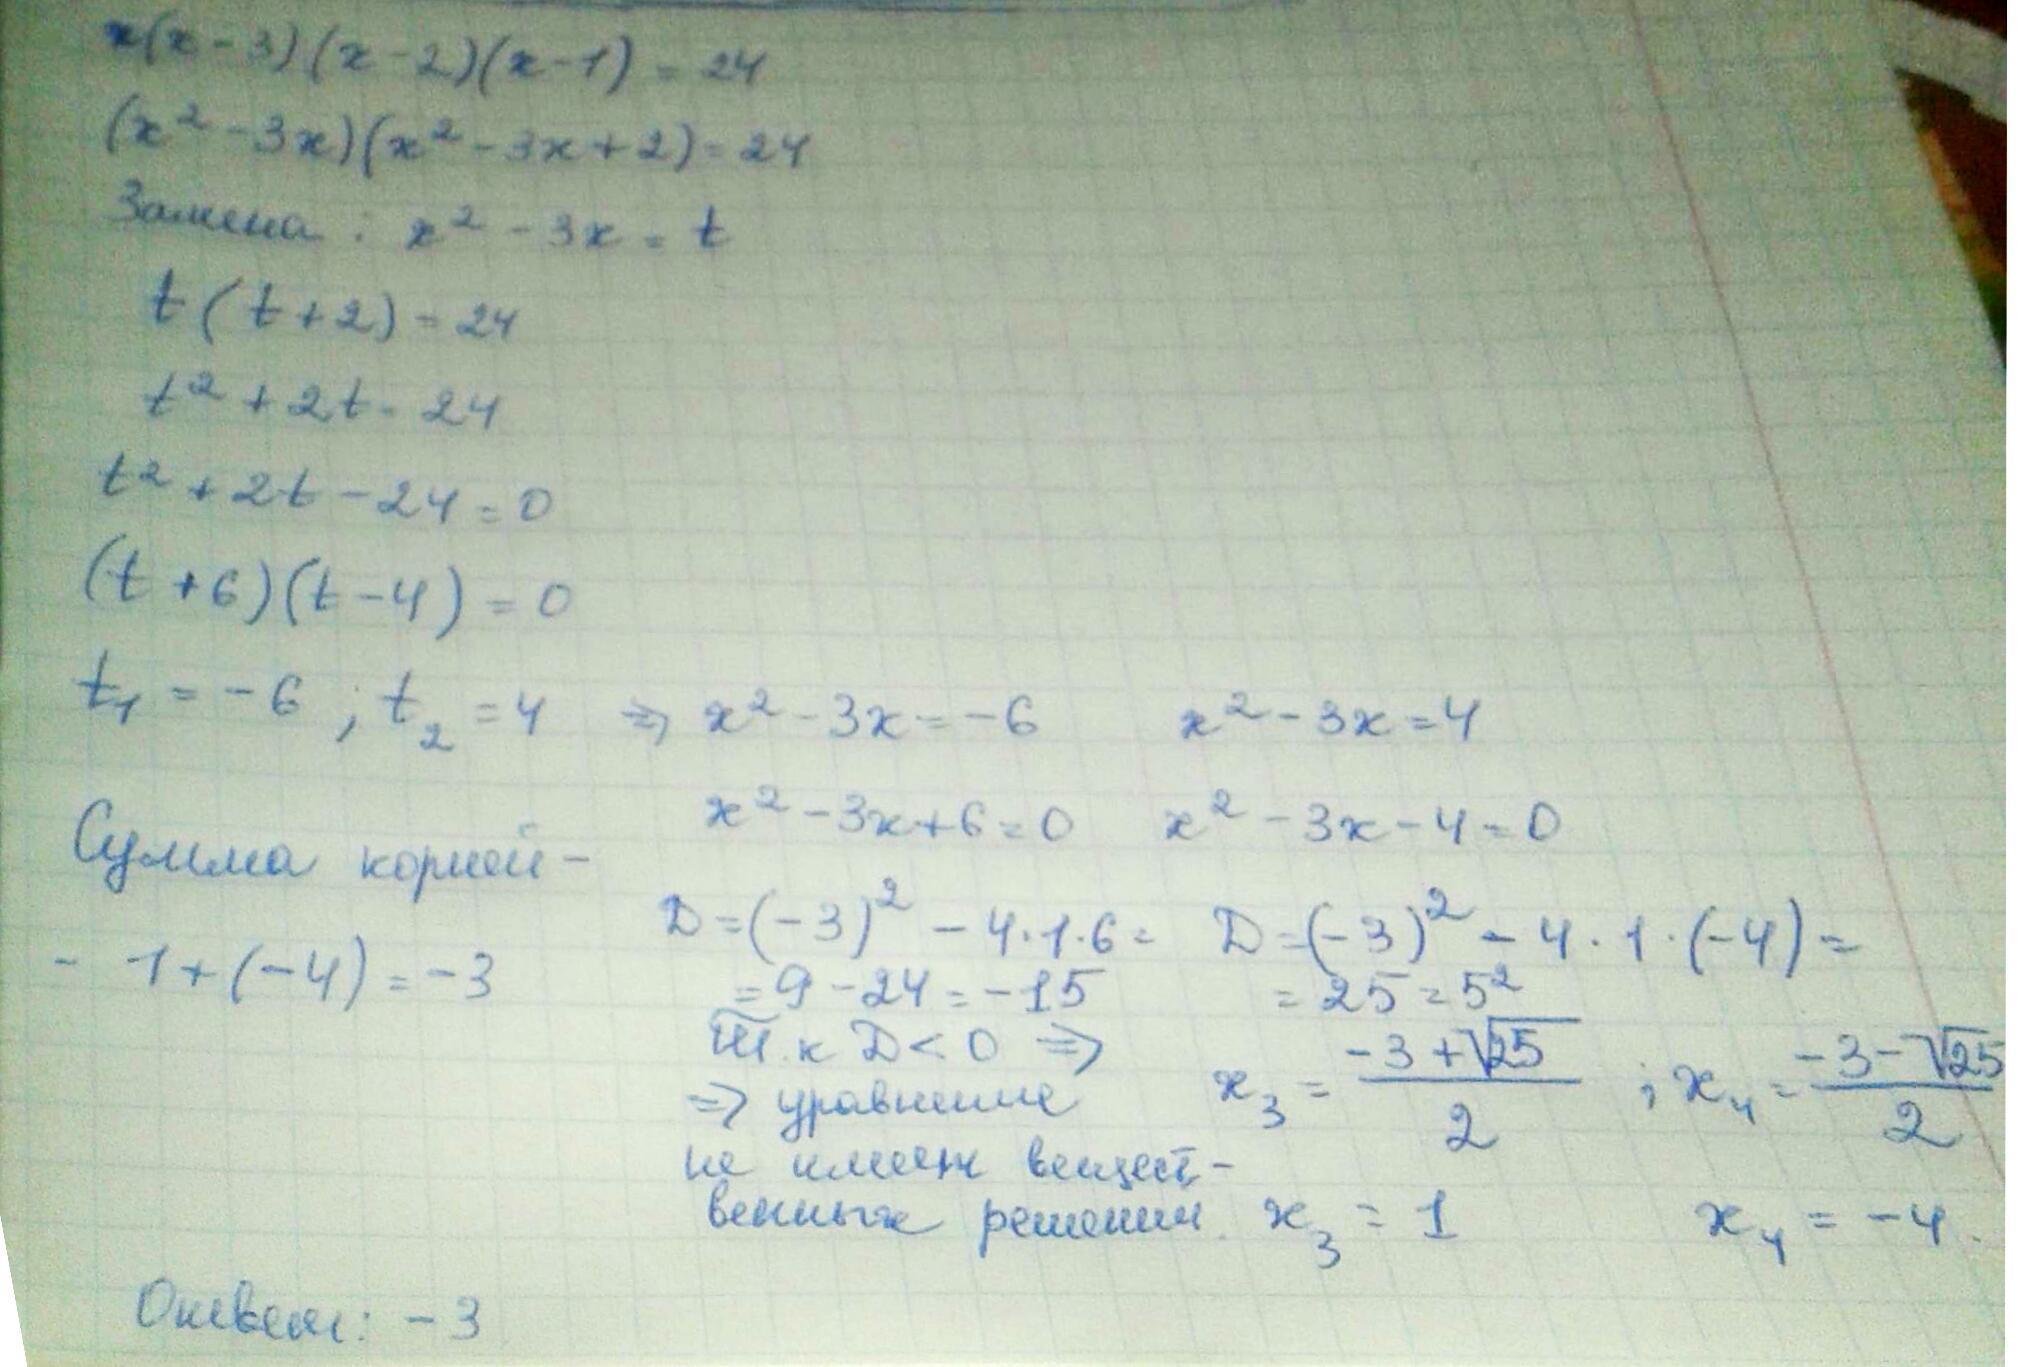 x(x-3)(x-2)(x-1)=24
(x²-3x)(x²-3x+2)=24
Замена: x²-3x=t
t(t+2)=24
t²+2t=24
t²+2t-24=0
(t+6)(t-4)=0
t₁=-6; t₂=4 ⇒ x²-3x=-6 x²-3x=4
x²-3x+6=0 x²-3x-4=0
Сумма корней-
- 1+(-4)=-3
D=(-3)²-4·1·6=
=9-24=-15
Т.к D<0 ⇒
⇒ уравнение
не имеет вещест-
венных решений.
D=(-3)²-4·1·(-4)=
=25=5²
x₃=(-3+√25)/2; x₄=(-3-√25)/2
x₃=1 x₄=-4.
Ответ: -3